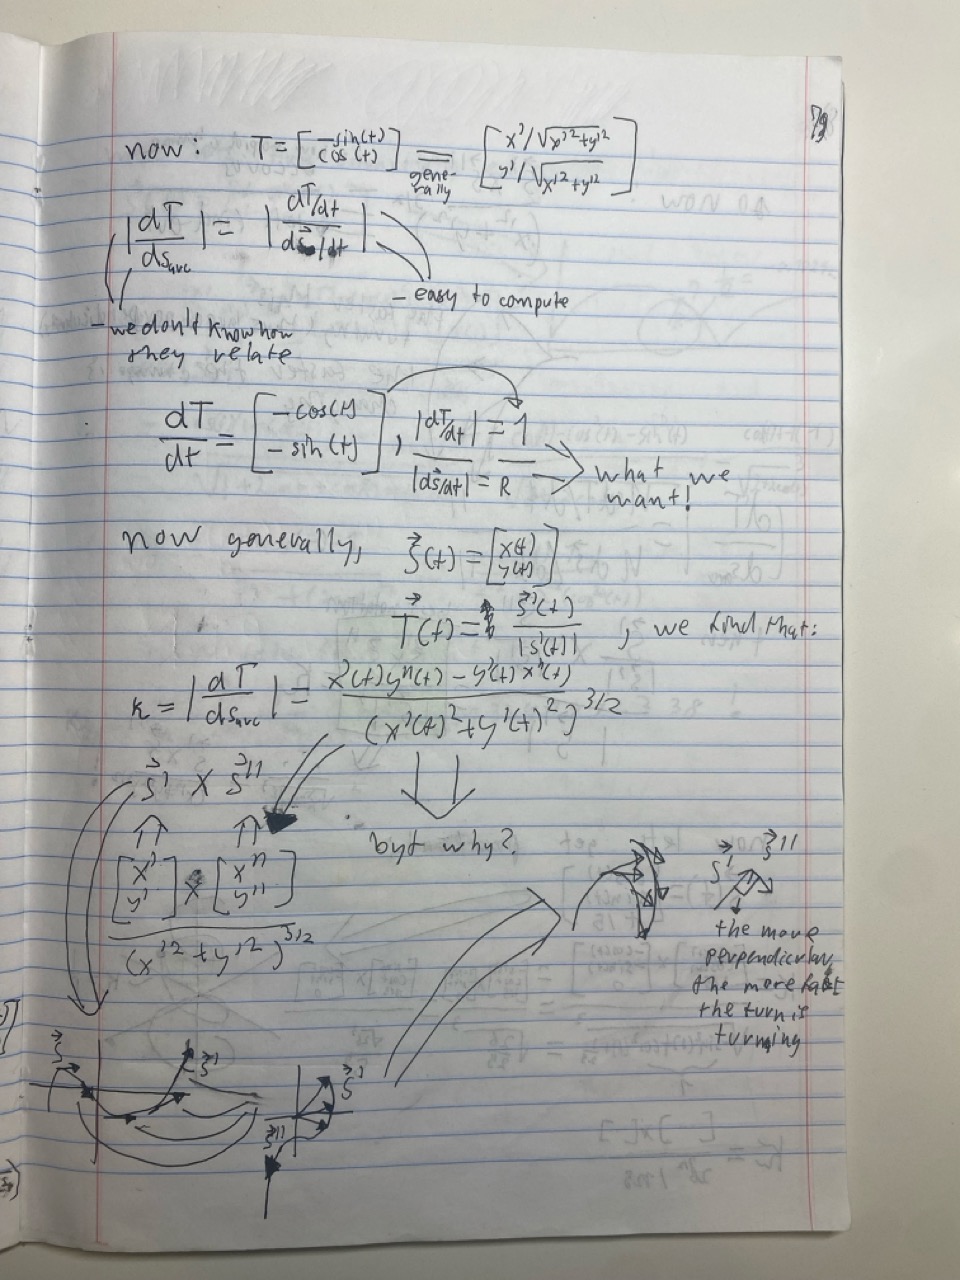 79
now: T = [-sin(t) cos(t)] = generally [x'/√x'²+y'² y'/√x'²+y'²]
|dT/ds_arc| = |dT/dt / ds⃗/dt|
- easy to compute
- we don't know how
they relate
dT/dt = [-cos(t) -sin(t)], |dT/dt| = 1 / |ds⃗/dt| = R
what we
want!
now generally, s⃗(t) = [x(t) y(t)]
T⃗(t) = s⃗'(t)/|s'(t)|, we find that:
κ = |dT/ds_arc| = x'(t)y''(t) - y'(t)x''(t) / (x'(t)²+y'(t)²)^3/2
s⃗' × s⃗''
but why?
[x' y'] × [x'' y'']
(x'²+y'²)^3/2
s⃗' s⃗''
the more
perpendicular,
the more fast
the turn is
turning
s⃗ s⃗'
s⃗'
s⃗''